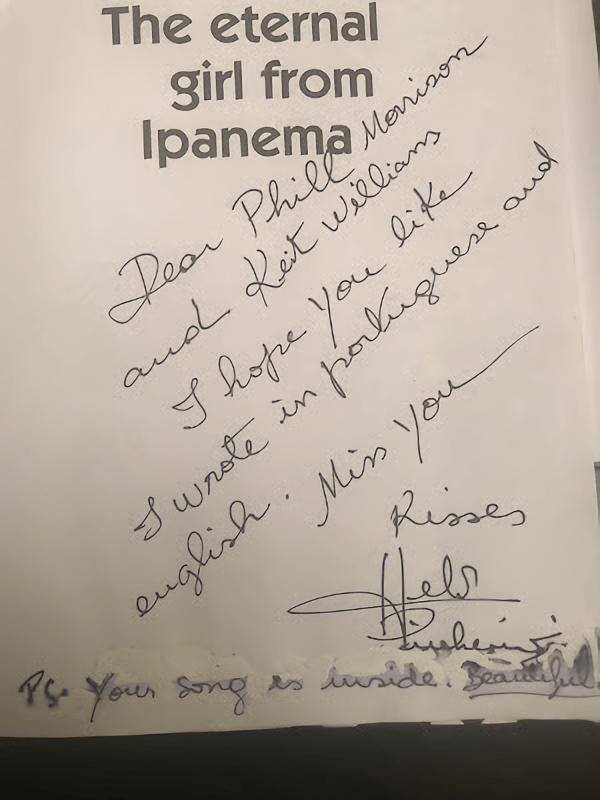 The eternal
girl from
Ipanema
Dear Phill Morrison
and Keit Williams
I hope you like
I wrote in portuguese and
english. Miss You
Kisses
Helô
Pinheiro
PS. Your song is inside. Beautiful